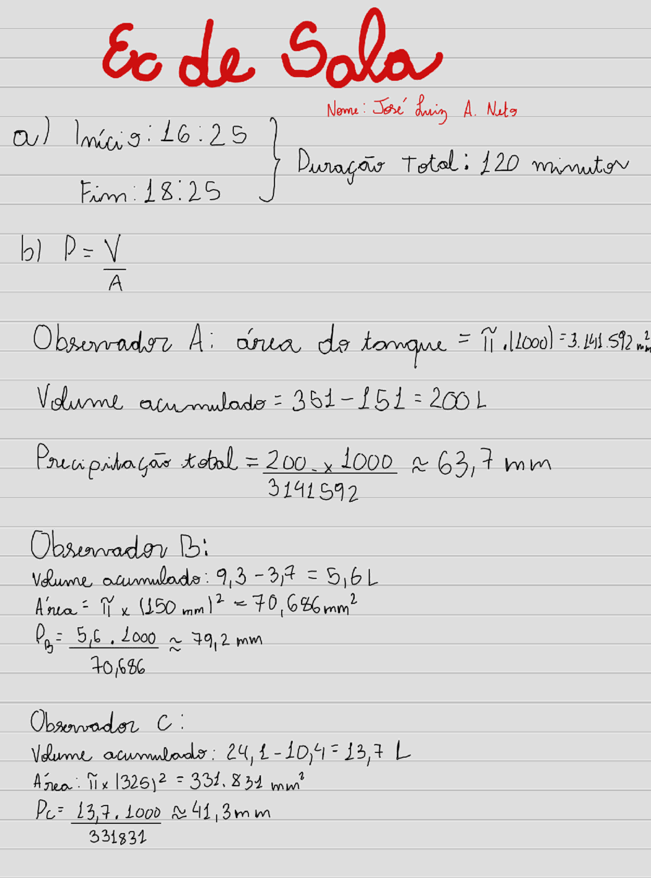 Ex de Sala
Nome: José Luiz A. Neto
a) Início: 16:25
Fim: 18:25
Duração Total: 120 minutos
b) P = V/A
Observador A: área do tanque = π.(1000) = 3.141.592 mm²
Volume acumulado = 351 - 151 = 200 L
Precipitação total = 200 . x 1000 / 3141592 ≈ 63,7 mm
Observador B:
Volume acumulado: 9,3 - 3,7 = 5,6 L
Área = π x (150 mm)² = 70,686 mm²
P_B = 5,6 . 1000 / 70,686 ≈ 79,2 mm
Observador C:
Volume acumulado: 24,1 - 10,4 = 13,7 L
Área: π x (325)² = 331.831 mm²
Pc = 13,7 . 1000 / 331831 ≈ 41,3 mm